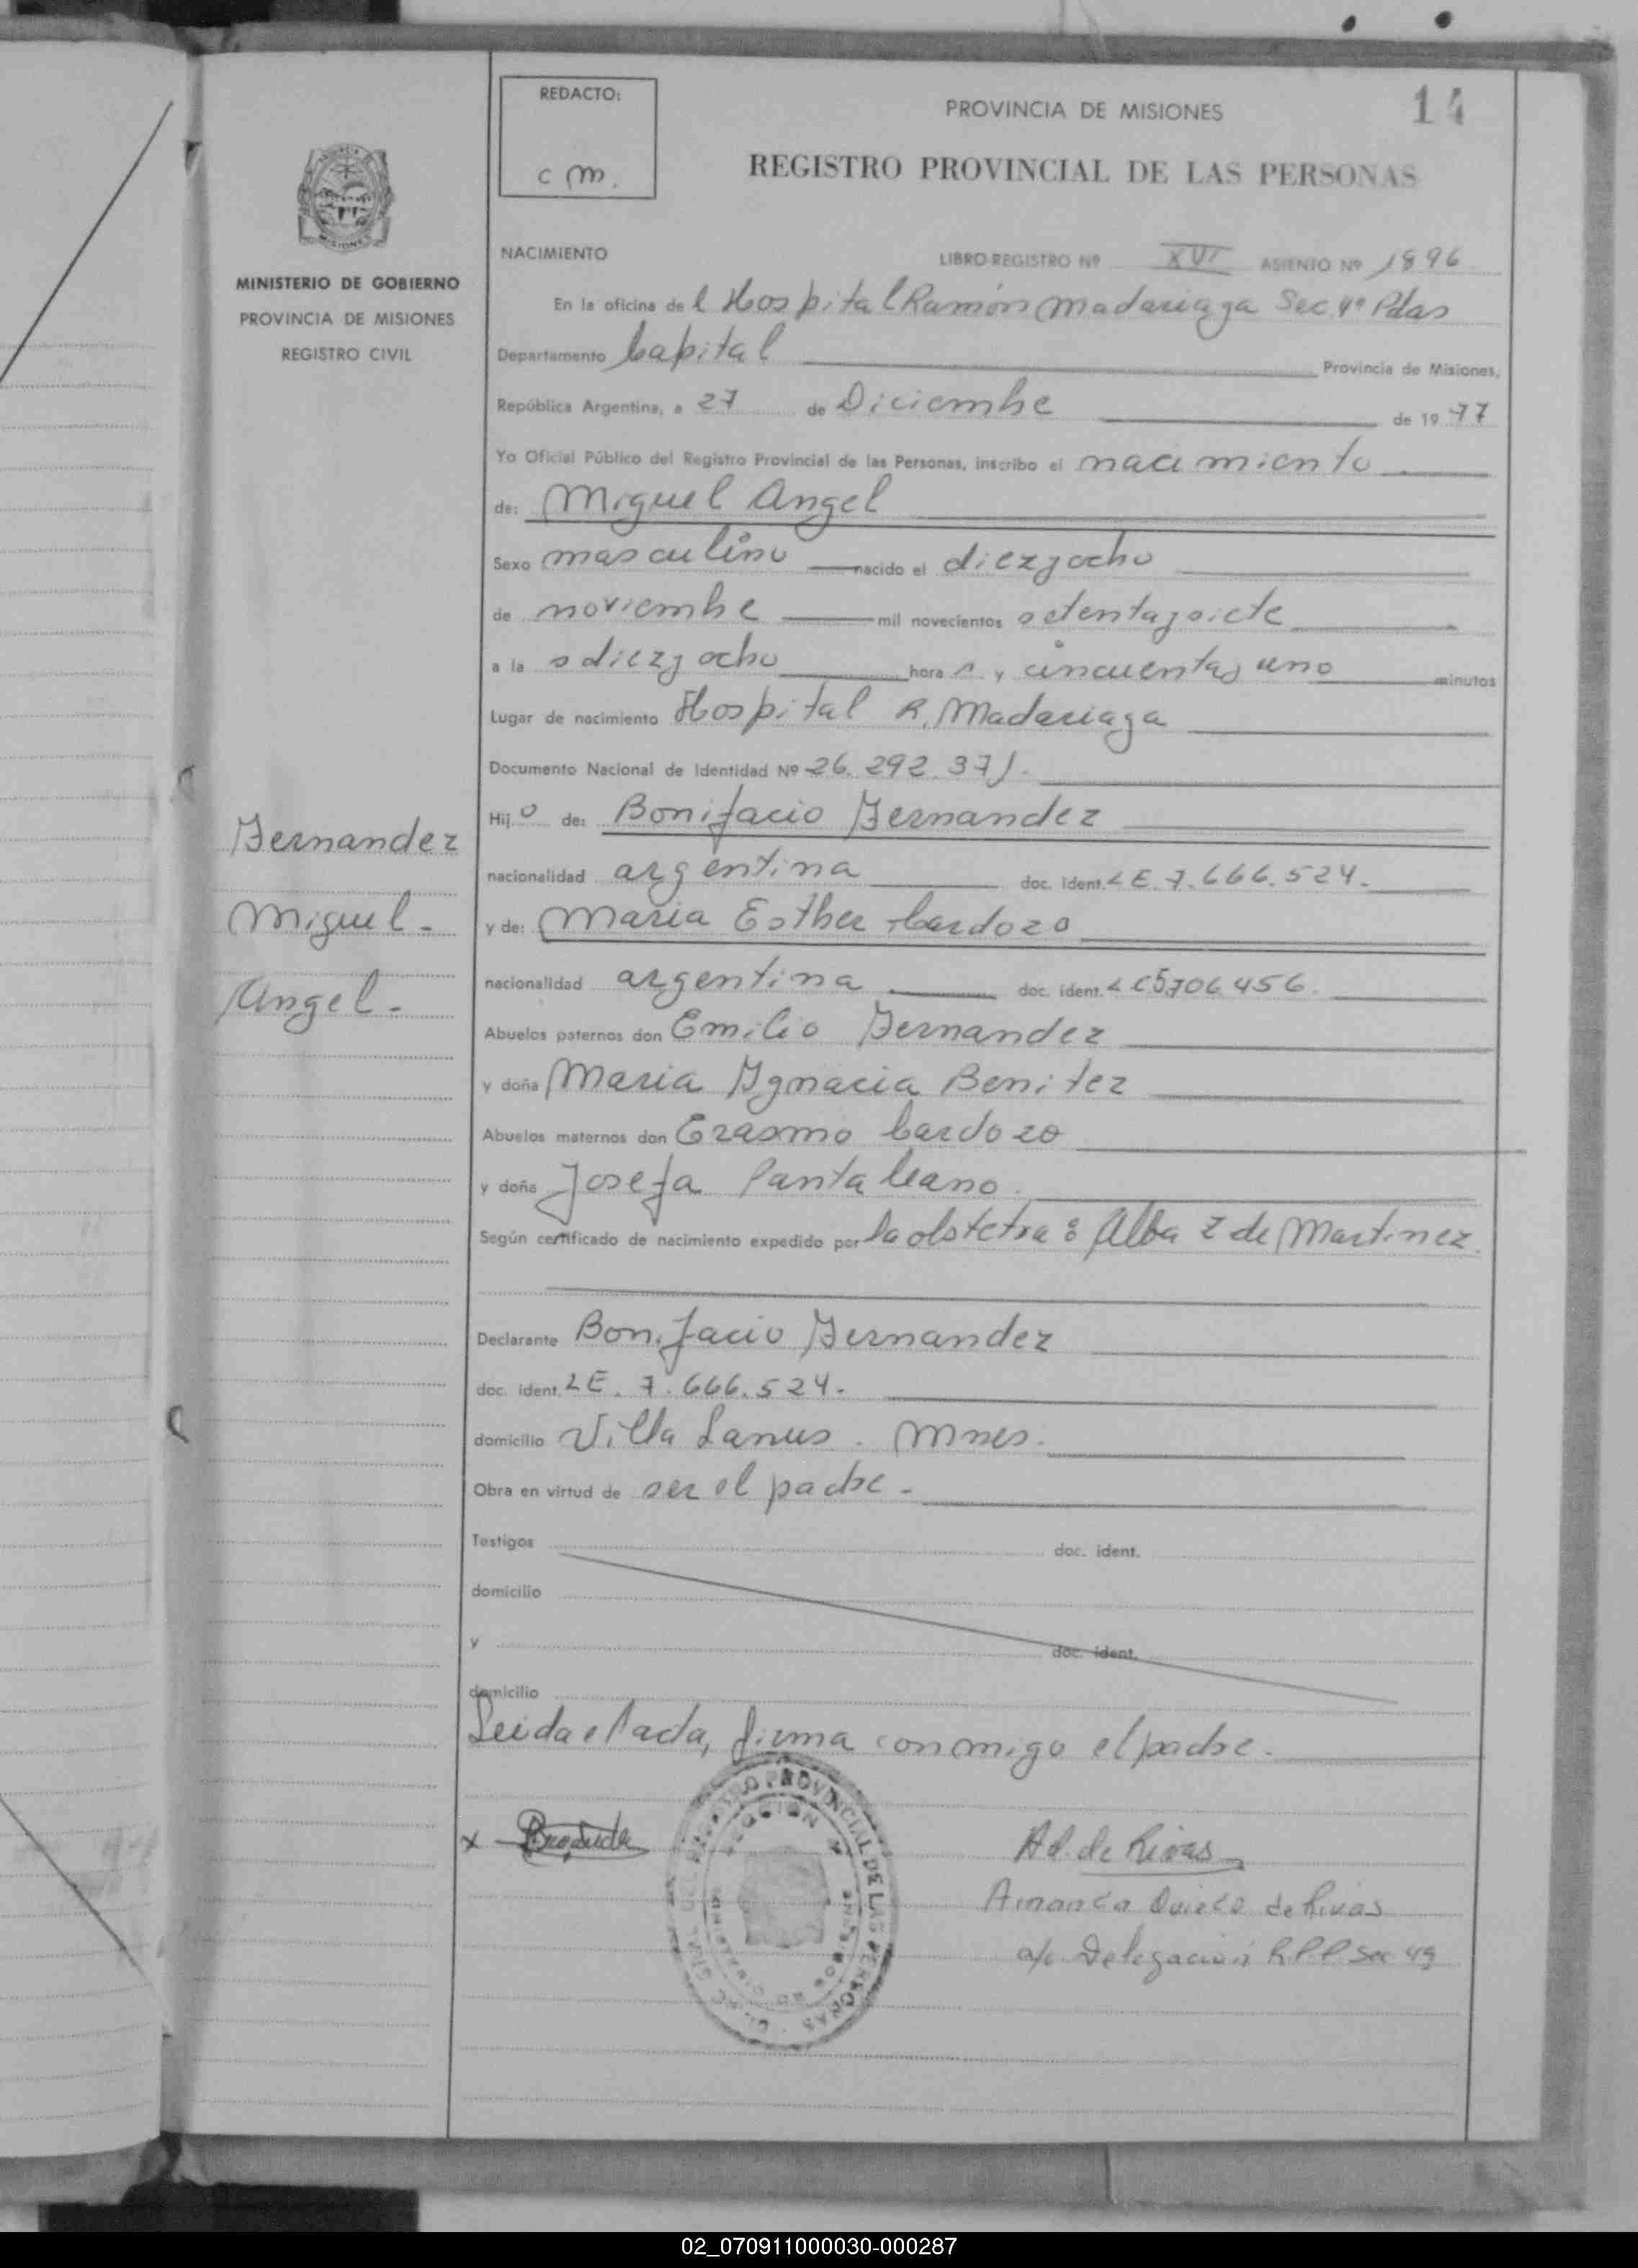 REDACTO:
c m.
PROVINCIA DE MISIONES
14
REGISTRO PROVINCIAL DE LAS PERSONAS
MINISTERIO DE GOBIERNO
PROVINCIA DE MISIONES
REGISTRO CIVIL
NACIMIENTO LIBRO-REGISTRO Nº XVI ASIENTO Nº 1896
En la oficina del Hospital Ramón Madariaga Sec. 4ª Pdas
Departamento Capital Provincia de Misiones,
República Argentina, a 27 de Diciembre de 1977
Yo Oficial Público del Registro Provincial de las Personas, inscribo el nacimiento
de: Miguel Angel
Sexo masculino nacido el diezyocho
de noviembre mil novecientos setentaysiete
a la s diezyocho hora s y cincuentay uno minutos
Lugar de nacimiento Hospital R. Madariaga
Documento Nacional de Identidad Nº 26.292.371.
Hij o de: Bonifacio Fernandez
nacionalidad argentina doc. ident. LE. 7.666.524.
y de: Maria Esther Cardozo
nacionalidad argentina doc. ident. LC 5.706.456.
Abuelos paternos don Emilio Fernandez
y doña Maria Ygnacia Benitez
Abuelos maternos don Erasmo Cardozo
y doña Josefa Pantaleano.
Según certificado de nacimiento expedido por la obstetra: Alba Z de Martinez.
Fernandez
Miguel -
Angel -
Declarante Bonifacio Fernandez
doc. ident. LE. 7.666.524.
domicilio Villa Lanus. Mnes.
Obra en virtud de ser el padre.
Testigos doc. ident.
domicilio
y doc. ident.
domicilio
Leida el acta, firma conmigo el padre.
x
REGISTRO PROVINCIAL DE LAS PERSONAS
SECCION
Ad. de Rivas
de Rivas
a/c Delegación R.P.P Sec 4ª
02_070911000030-000287